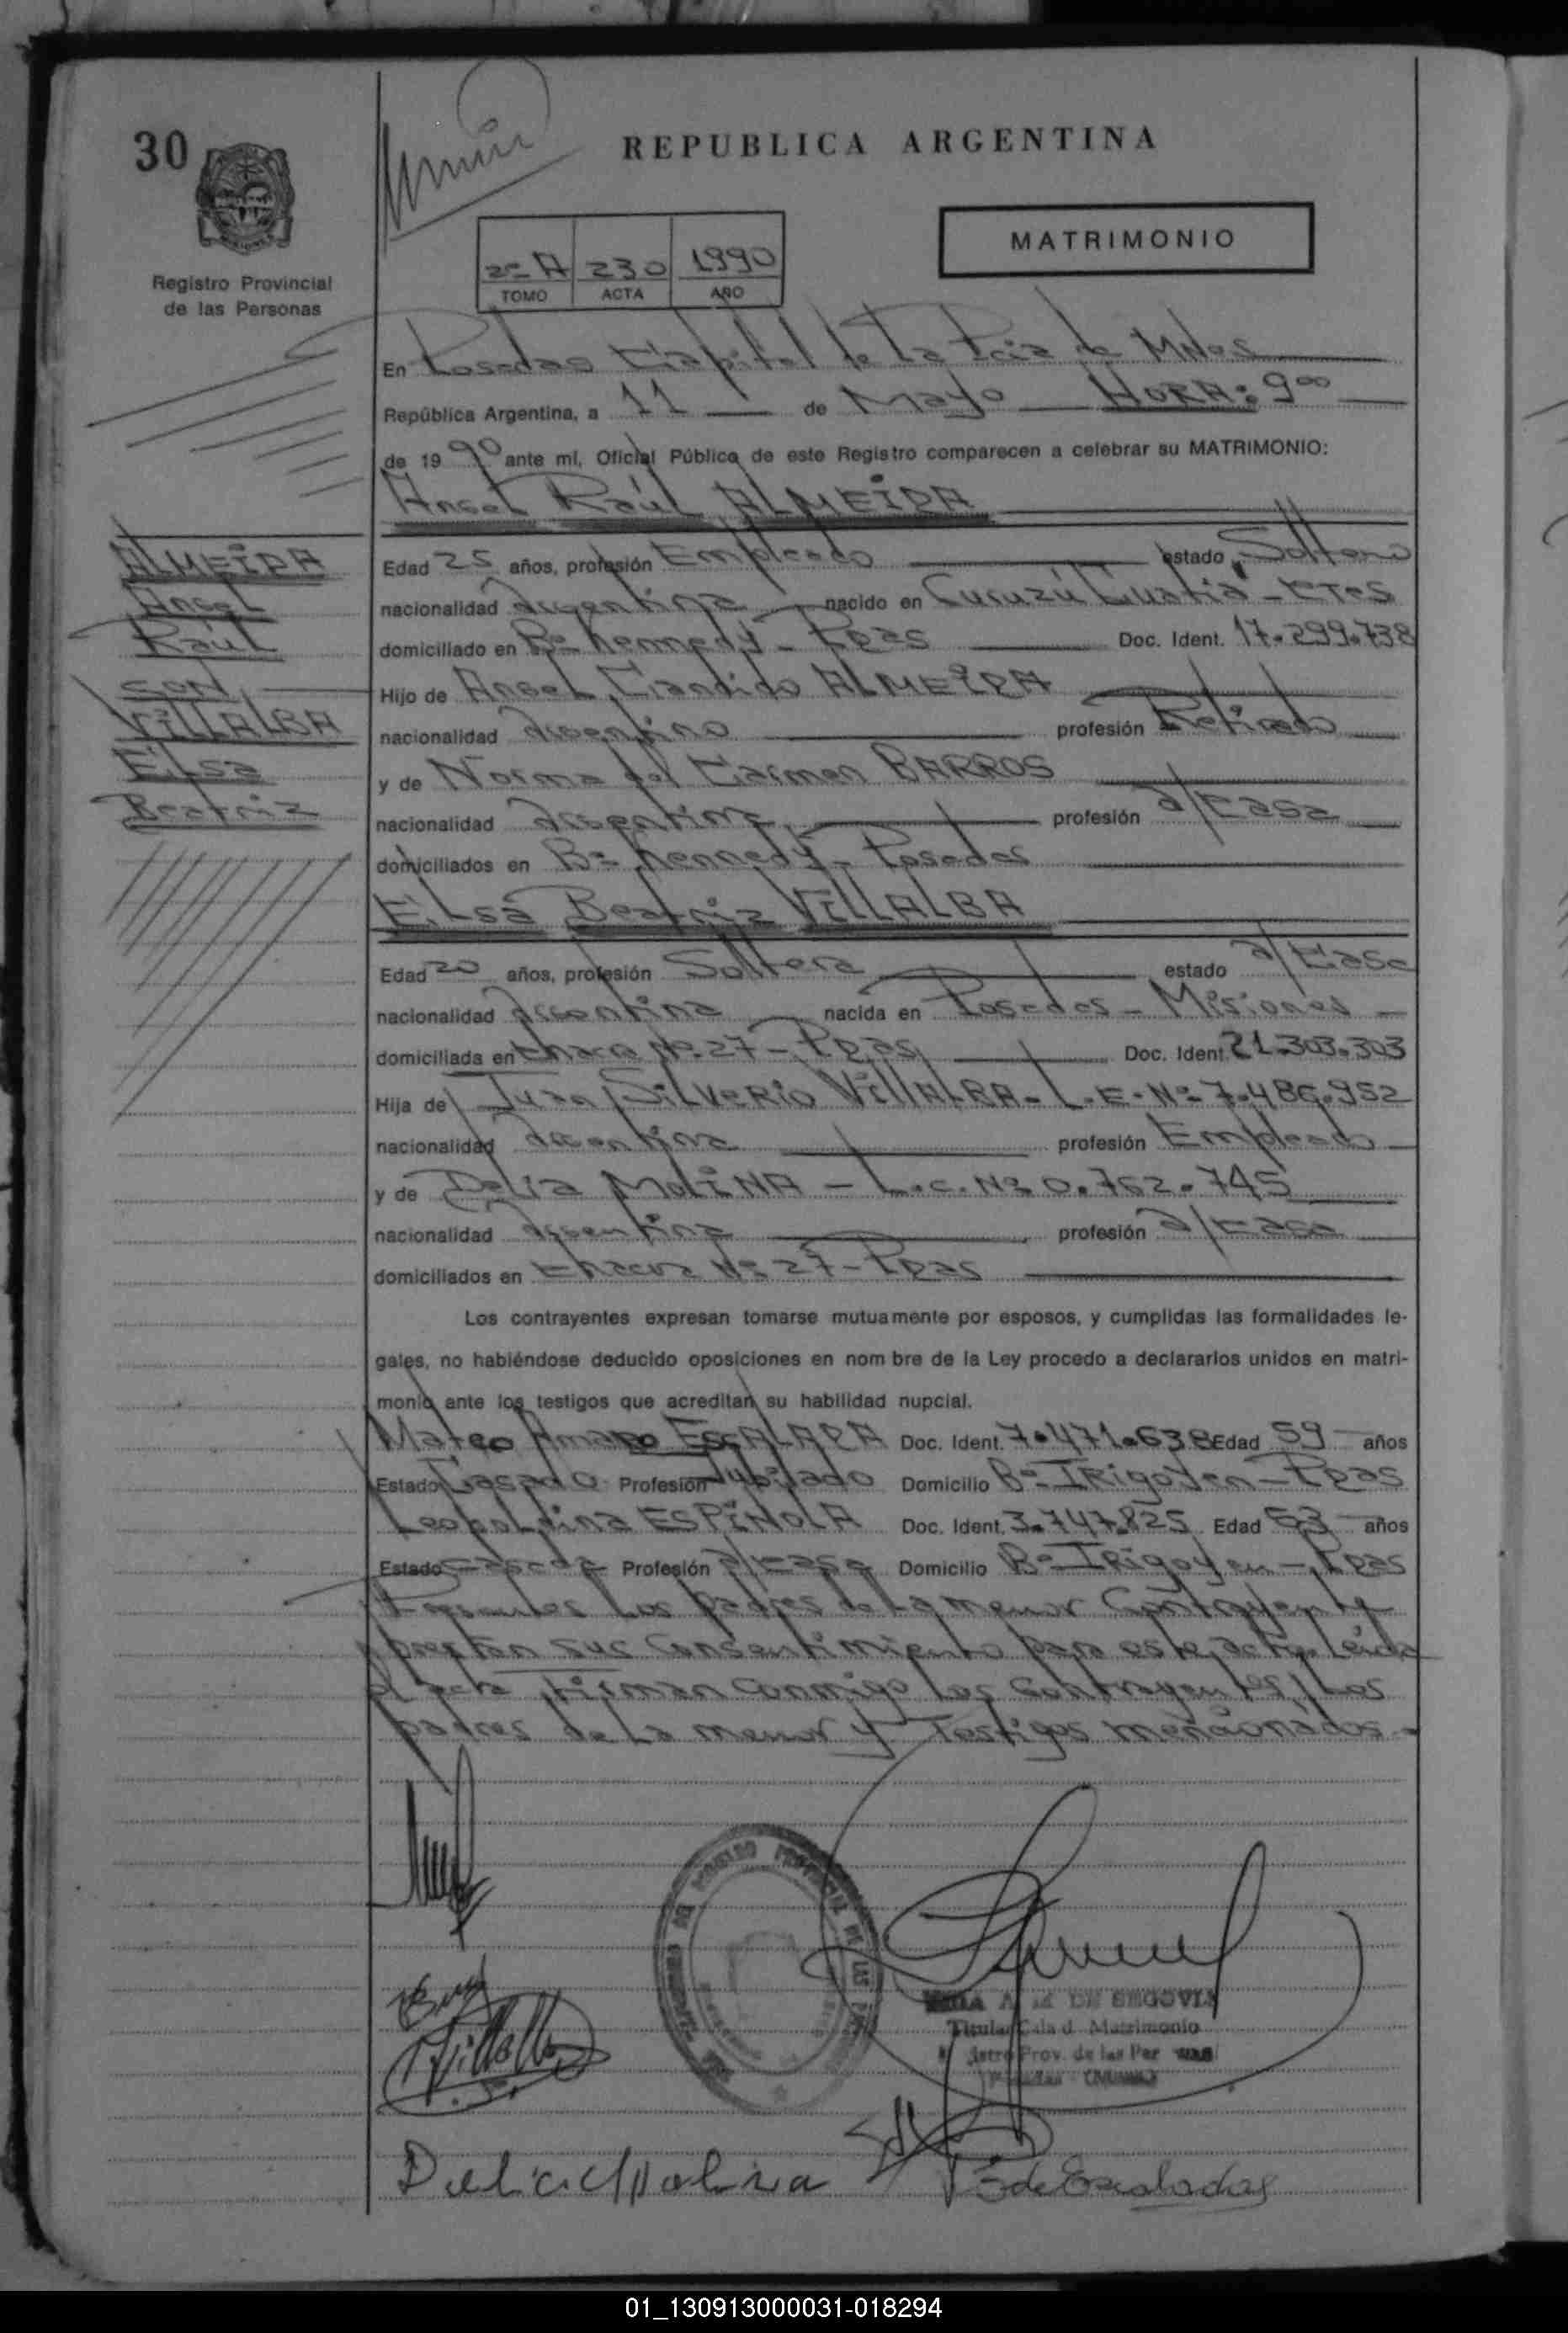 30
REPUBLICA ARGENTINA
MATRIMONIO
Registro Provincial
de las Personas
2º A 230 1990
TOMO ACTA AÑO
En Posadas Capital de la Pcia de Mnes
República Argentina, a 11 de Mayo HORA: 9 00
de 19 90 ante mí, Oficial Público de este Registro comparecen a celebrar su MATRIMONIO:
Angel Raúl ALMEIDA
ALMEIDA
Angel
Raúl
CON
VILLALBA
Elsa
Beatriz
Edad 25 años, profesión Empleado estado Soltero
nacionalidad argentina nacido en Curuzú Cuatiá - Ctes
domiciliado en Bº Kennedy - Pdas Doc. Ident. 17.299.738
Hijo de Angel Candido ALMEIDA
nacionalidad argentino profesión Retirado
y de Norma del Carmen BARROS
nacionalidad argentina profesión a/casa
domiciliados en Bº Kennedy - Posadas
Elsa Beatriz VILLALBA
Edad 20 años, profesión Soltera estado a/Casa
nacionalidad argentina nacida en Posadas - Misiones -
domiciliada en Chacra Nº 27 - Pdas Doc. Ident. 21.303.303
Hija de Juan SILVERIO VILLALBA - L.E. Nº 7.486.952
nacionalidad argentina profesión Empleado
y de Delia MOLINA - L.C. Nº 0.762.745
nacionalidad argentina profesión a/casa
domiciliados en Chacra Nº 27 - Pdas
Los contrayentes expresan tomarse mutuamente por esposos, y cumplidas las formalidades le-
gales, no habiéndose deducido oposiciones en nom bre de la Ley procedo a declararlos unidos en matri-
monio ante los testigos que acreditan su habilidad nupcial.
Mateo Amaro ESCALADA Doc. Ident. 7.471.638 Edad 59 años
Estado Casado Profesión Jubilado Domicilio Bº IRigoyen - Pdas
Leopoldina ESPINOLA Doc. Ident. 3.747.825 Edad 53 años
Estado casada Profesión a/casa Domicilio Bº IRigoyen - Pdas
Presentes los padres de la menor Contrayente
prestan sus Consentimiento para este acto. Leída
el acta, firman conmigo los Contrayentes, los
padres de la menor y Testigos mencionados.-
DE SEGOVIA
Titular Sala d. Matrimonio
Prov. de las Per
Delia Molina
E de Escalada
01_130913000031-018294